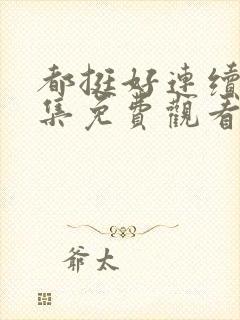 都挺好連續
集免費觀看
爺太